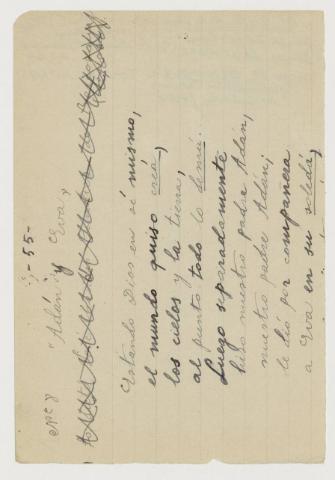 - 55 -
"Adán y Eva"
Estando Dios en sí mismo,
el mundo quiso creá,
los cielos y la tierra,
al punto todo lo demá.
Luego separadamente
hizo nuestro padre Adán,
nuestro padre Adán;
le dió por compañera
a Eva en su soledá,